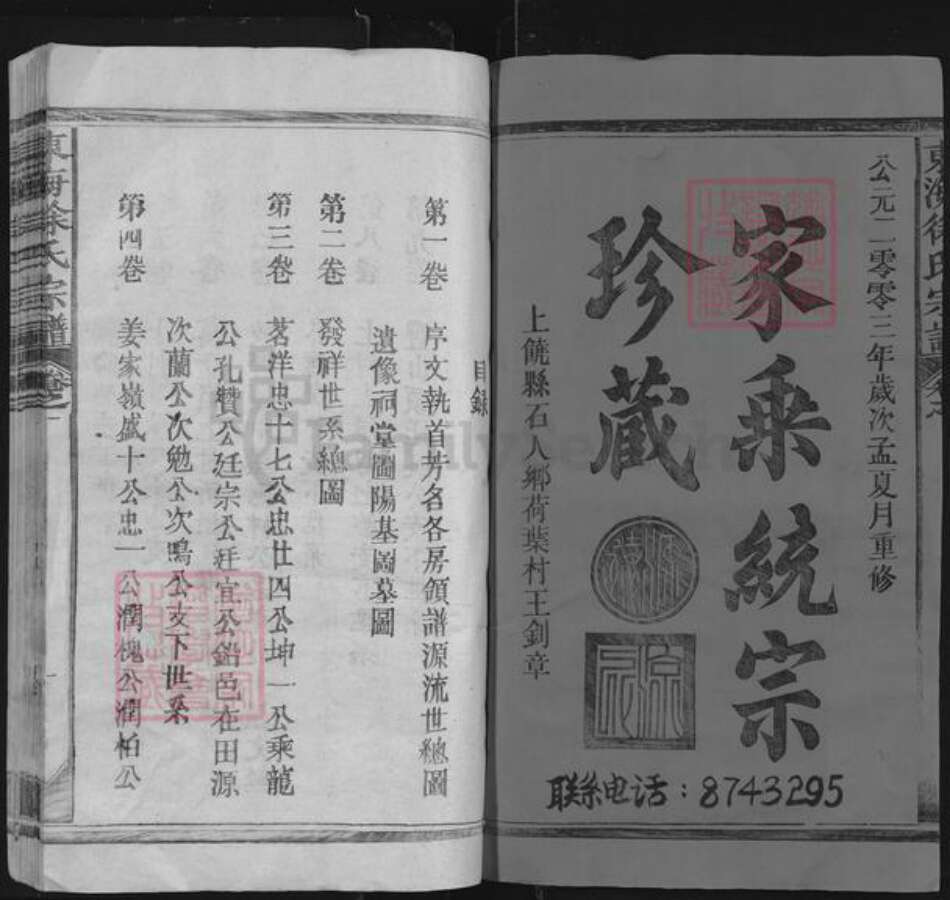 公元二零零三年歲次孟夏月重修
家乘統宗
珍藏
上饒縣石人鄉荷葉村王釗章
聯系电话：8743295
目錄
第一卷 序文執首芳名各房領譜源流世總圖
遺像祠堂圖陽基圖墓圖
第二卷 發祥世系總圖
第三卷 茗洋忠十七公忠廿四公坤一公乘龍
公孔贊公廷宗公廷宜公鉛邑在田源
次蘭公次勉公次鳴公支下世系
第四卷 姜家嶺盛十公忠一公潤槐公潤柏公
東海徐氏宗譜 卷之一